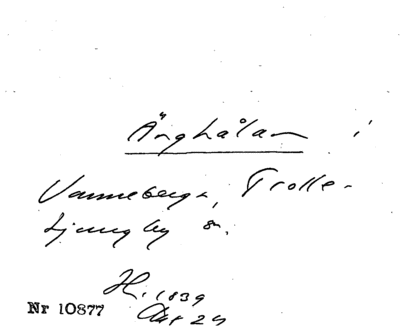 Änghålan i
Vanneberga, Trolle-
Ljungby sn.
H. 1839
Akt 24
Nr 10877